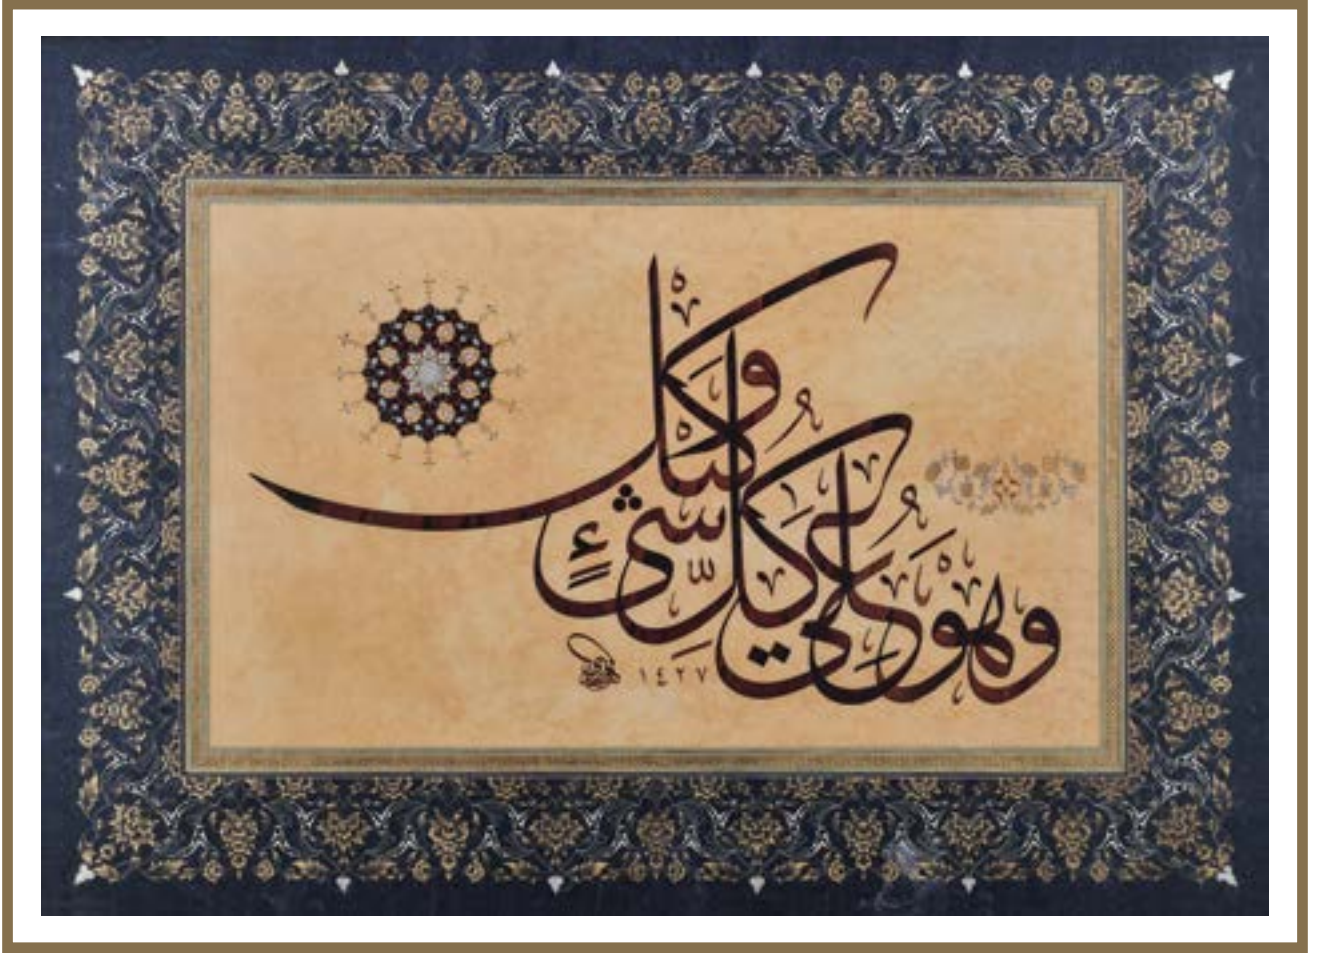 وَهُوَ عَلَىٰ كُلِّ شَيْءٍ وَكِيلٌ
١٤٢٧